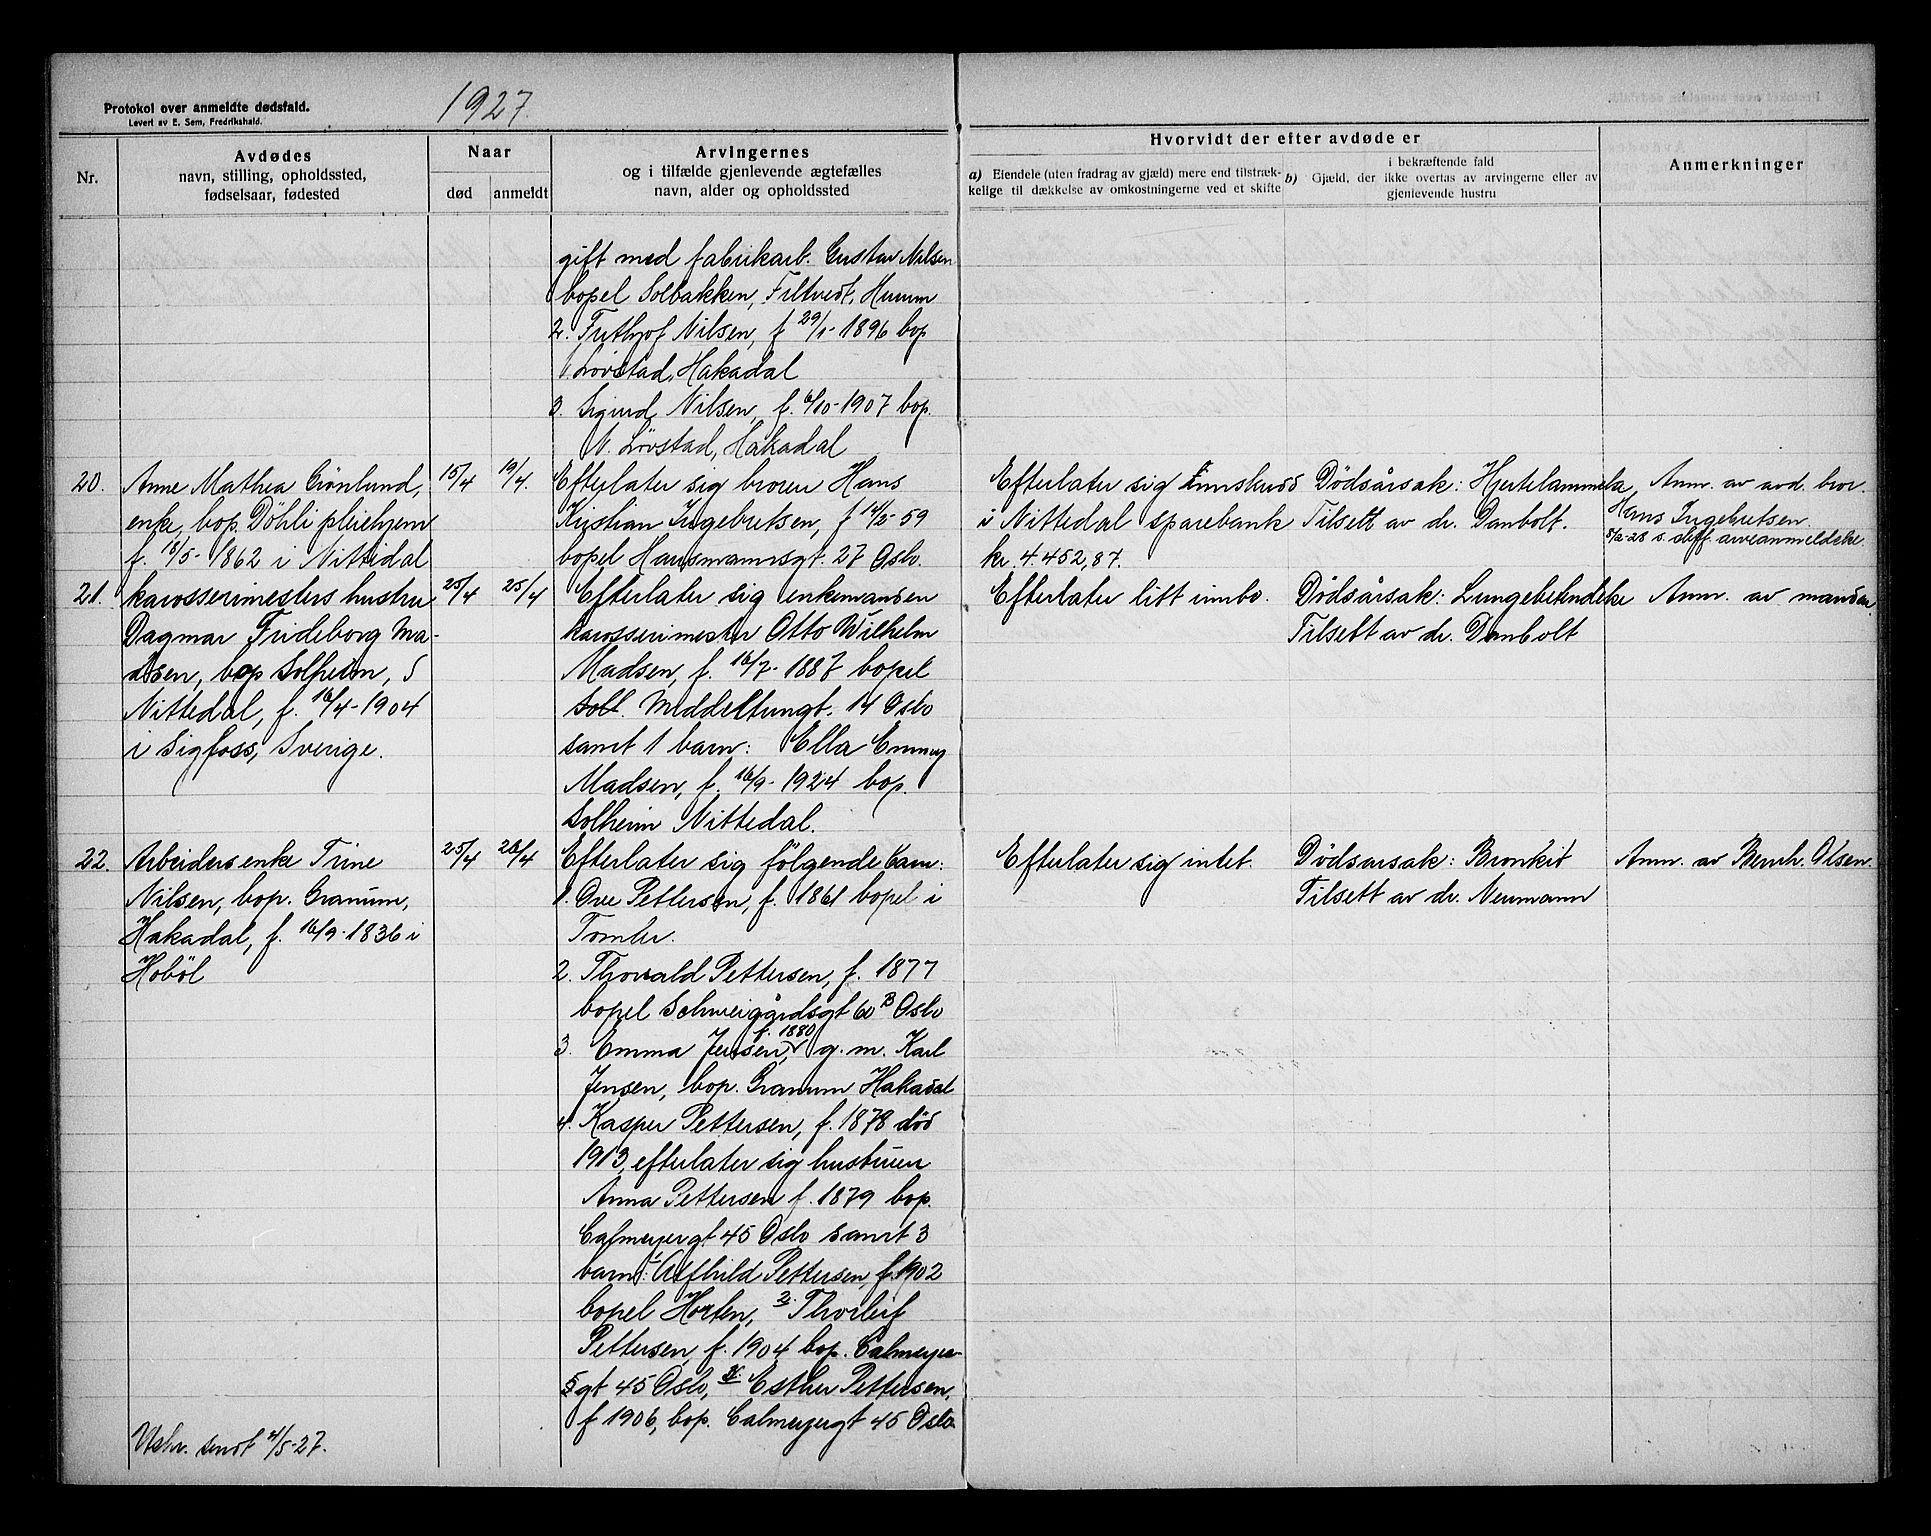 Protokol over anmeldte dødsfald.
Levert av E. Sem, Fredrikshald.
1927.
Nr.
Avdødes
navn, stilling, opholdssted,
fødselsaar, fødested
Naar
død
anmeldt
Arvingernes
og i tilfælde gjenlevende ægtefælles
navn, alder og opholdssted
Hvorvidt der efter avdøde er
a) Eiendele (uten fradrag av gjæld) mere end tilstræk-
kelige til dækkelse av omkostningerne ved et skifte
i bekræftende fald
b) Gjæld, der ikke overtas av arvingerne eller av
gjenlevende hustru
Anmerkninger
gift med fabrikarb. Gustav Nilsen
bopel Solbakken, Filtvedt, Hurum
2. Frithjof Nilsen, f 29/1-1896 bop
Lövstad, Hakadal
3. Sigurd Nilsen, f. 6/10-1907 bop.
N. Lövstad, Hakadal
20.
Anne Mathea Grönlund,
enke, bop. Döhli pleiehjem
f. 18/5-1862 i Nittedal
15/4
19/4.
Efterlater sig broren Hans
Kristian Ingebretsen, f 14/2-59
bopel Hausmannsgt. 27 Oslo.
Efterlater sig Innskudd
i Nittedal sparebank
kr. 4.452,87.
Dödsårsak: Hjertelammelse
Tilsett av dr. Danbolt.
Anm. av avd. bror
Hans Ingebretsen.
8/2-28 s. skiff. arveanmeldelse.
21.
karosserimesters hustru
Dagmar Frideborg Ma-
dsen, bop Solheim,
Nittedal, f. 16/4-1904
i Sigfoss, Sverige.
25/4
25/4
Efterlater sig enkemanden
karosserimester Otto Wilhelm
Madsen, f. 16/7-1887 bopel
Soll. Middeltungt. 14 Oslo
samt 1 barn: Ella Emmy
Madsen, f. 16/9-1924 bop.
Solheim Nittedal.
Efterlater litt innbo.
Dödsårsak: Lungebetendelse
Tilsett av dr. Danbolt
Anm. av manden
22.
Arbeidersenke Trine
Nilsen, bop. Granum,
Hakadal, f. 16/9-1836 i
Hoböl
25/4
28/4
Efterlater sig fölgende barn:
1. Ove Pettersen, f. 1861 bopel i
Tomter.
2. Thorvald Pettersen, f. 1877
bopel Schweigårdsgt 60 B Oslo
f. 1880
3. Emma Jensen, g. m. Karl
Jensen, bop. Granum Hakadal
4. Kasper Pettersen, f. 1878 död
1913, efterlater sig hustruen
Anna Pettersen f. 1879 bop.
Calmeyergt 45 Oslo samt 3
barn: 1. Alfhild Pettersen, f. 1902
bopel Horten, 2. Thorleif
Pettersen, f. 1904 bop. Calmeyer-
gt 45 Oslo, 3. Esther Pettersen,
f 1906, bop. Calmeyergt 45 Oslo
Efterlater sig intet.
Dödsarsak: Bronkit
Tilsett av dr. Neumann
Anm. av Bernh. Olsen.
Utskr. sendt 4/5-27.